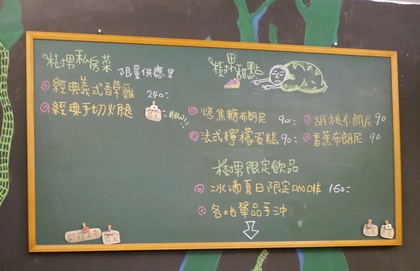 私房菜 限量供應
經典義式香草雞 240
經典手切火腿 New!!
甜點
烤焦糖布朗尼 90
胡桃布朗尼 90
法式檸檬蛋糕 90
香蕉布朗尼 90
限定飲品
冰滴夏日限定咖啡 160
各地單品手沖